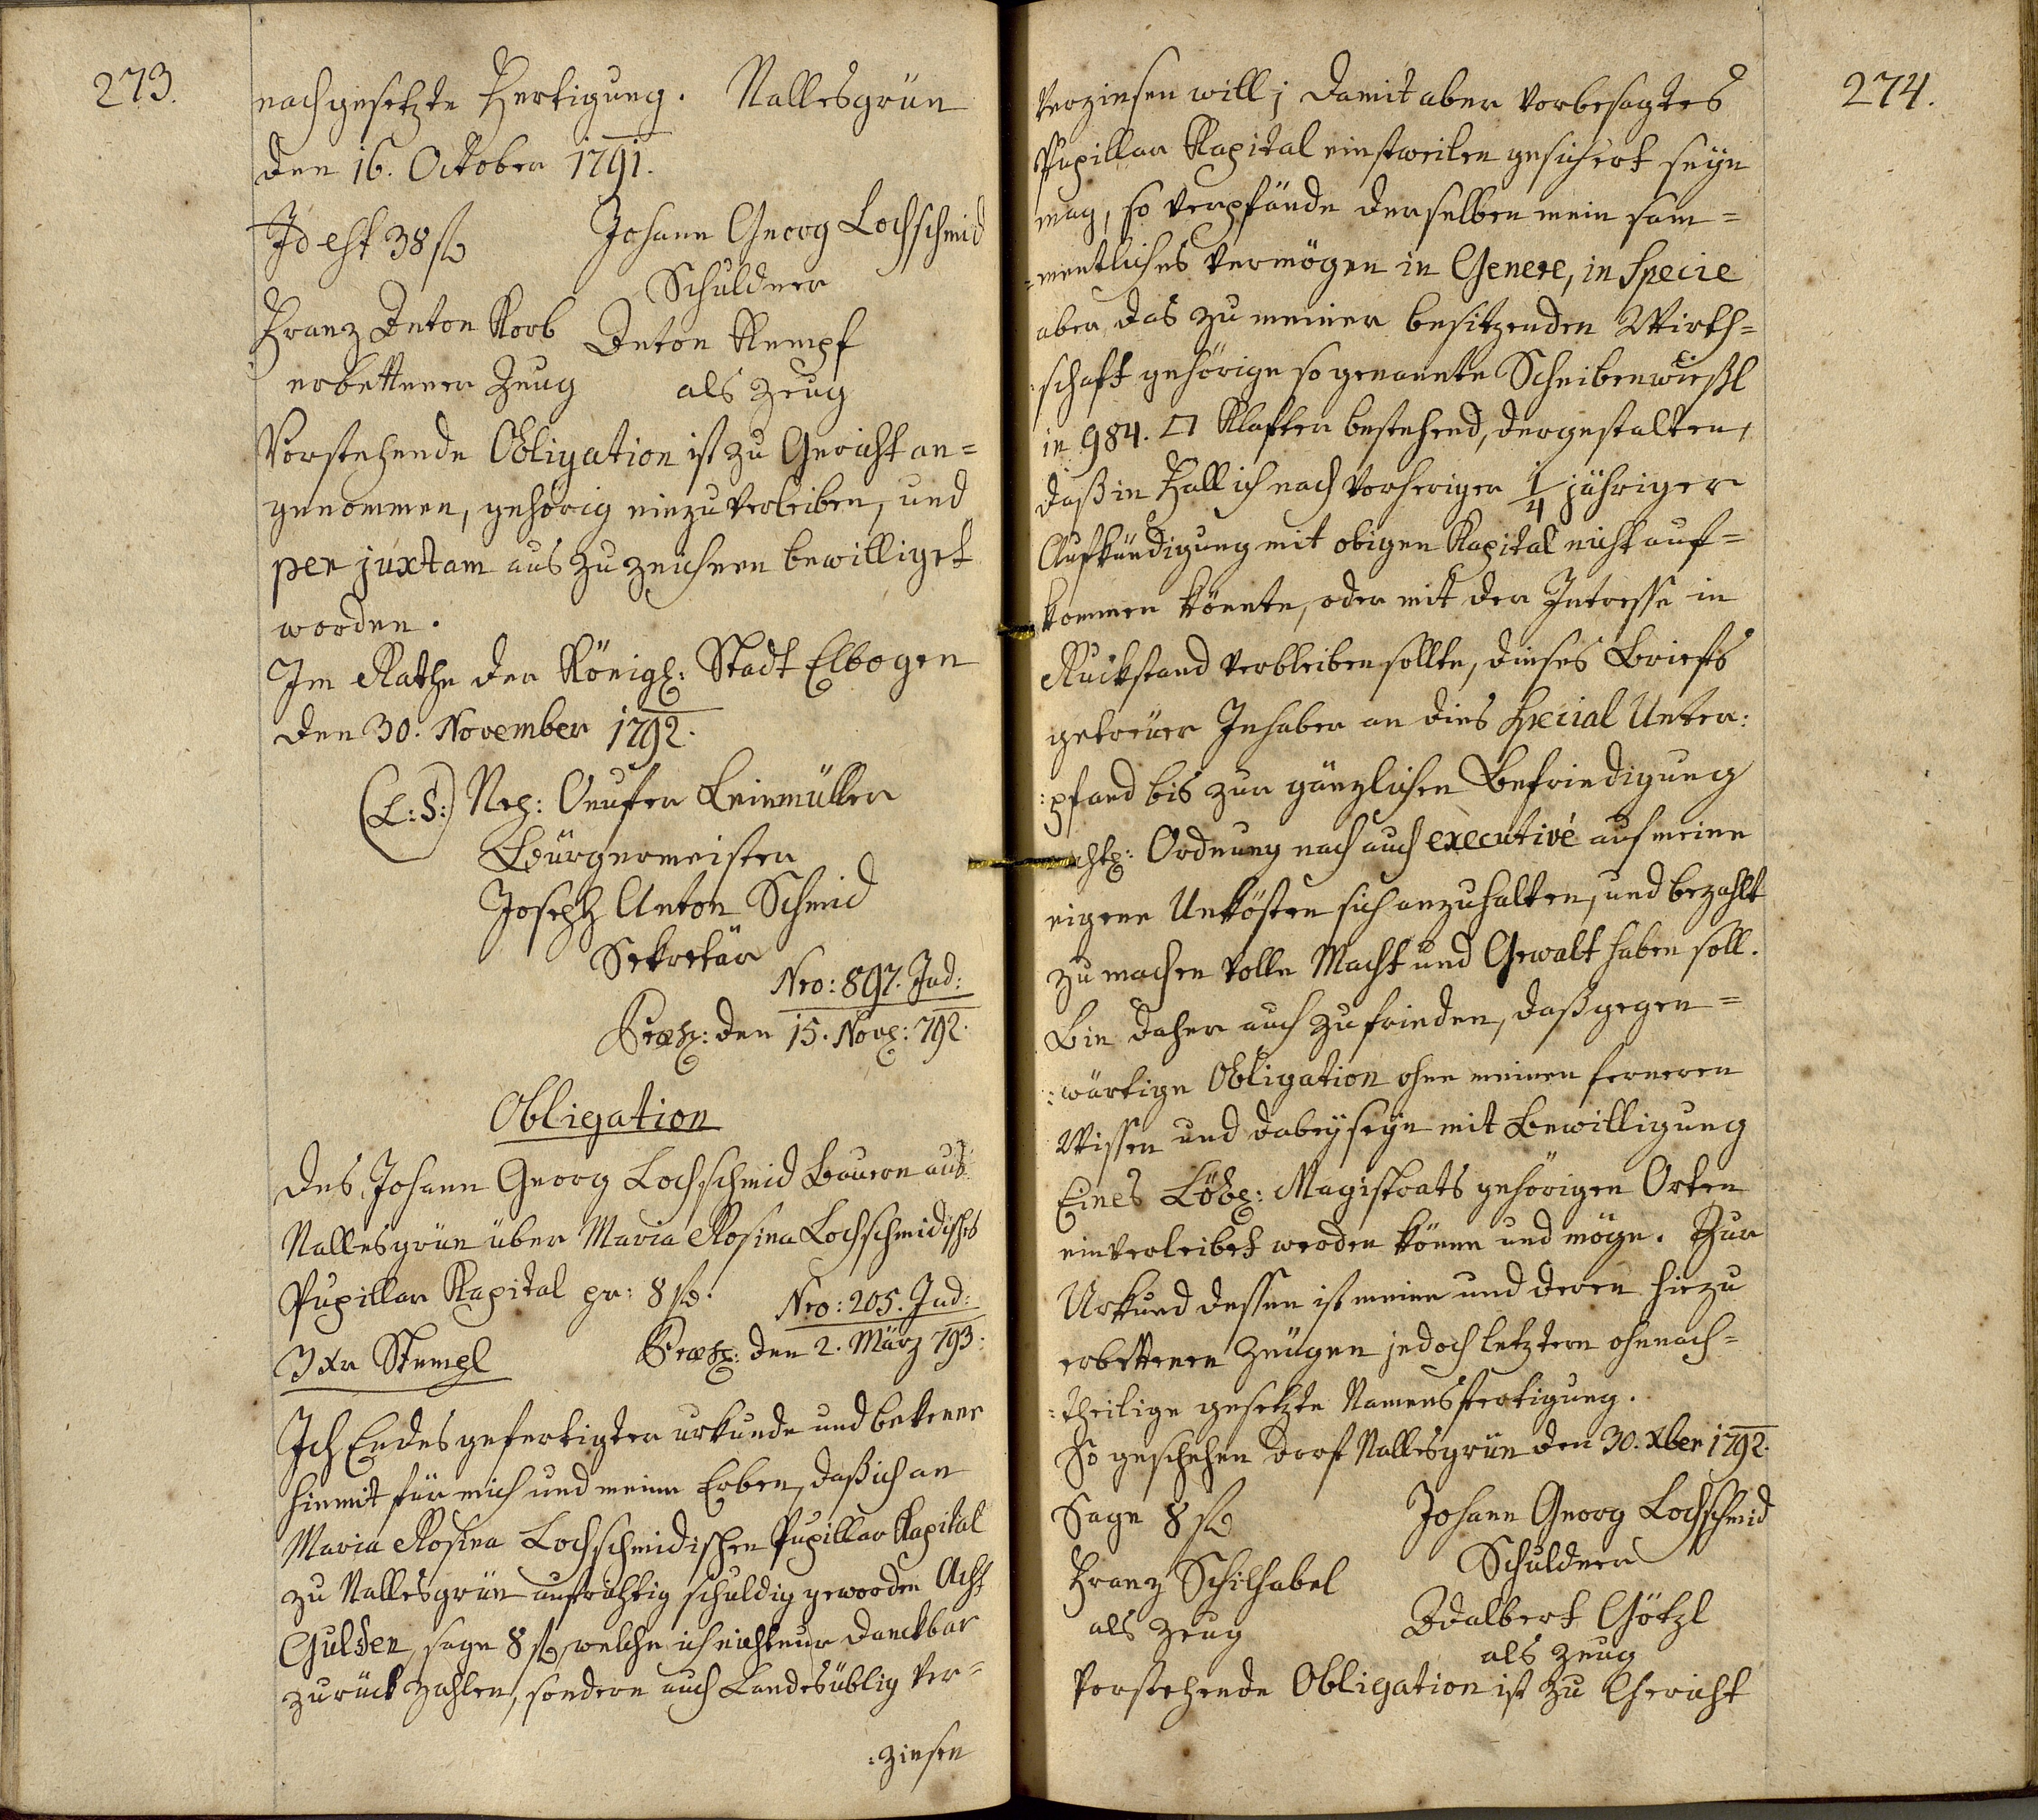 273.
nachgesetzte Fertigung. Nallesgrün
den 16. October 1791.
Id est 38 f
Johann Georg Lochschmid
Schuldner
Franz Anton Korb
erbettener Zeug
Anton Kempf
als Zeug
Vorstehende Obligation ist zu Gericht an=
genommen, gehörig einzuverleiben, und
per juxtam aus zu zeichnen bewilliget
worden.
Im Rathe der Königl: Stadt Elbogen
den 30. November 1792.
(L:S:) Nep: Onufer Leinmüller
Bürgermeister
Joseph Anton Schmid
Sekretär
Nro: 897. Jud:
Præs: den 15. Nov: 792.
Obligation
des Johann Georg Lochschmid Bauern aus
Nallesgrün über Maria Rosina Lochschmidisches
Pupillar Kapital pr: 8 f.
Nro: 205. Jud:
3 xr Stempl
Præs: den 2. März 793.
Ich Endesgefertigter urkunde und bekenne
hiemit für mich und meine Erben, daß ich an
Maria Rosina Lochschmidischen Pupillar Kapital
zu Nallesgrün aufrichtig schuldig geworden Acht
Gulden, sage 8 f, welche ich nicht nur danckbar
zurück zahlen, sondern auch Landesüblig ver=
:zinsen
274.
verzinsen will; damit aber vorbesagtes
Pupillar Kapital einstweilen gesichert seyn
mag, so verpfände derselben mein sam=
=mentliches Vermögen in Genere, in Specie
aber das zu meiner besitzenden Wirth=
:schaft gehörige so genannte Scheibenwießl
in 984. □ Klafter bestehend, dergestalten,
daß in Fall ich nach vorheriger 1/4 jähriger
Aufkündigung mit obigen Kapital nicht auf=
kommen könnte, oder mit der Intresse in
Ruckstand verbleiben sollte, dieses Briefs
getreuer Inhaber an dies Special Unter:
:pfand bis zur gänzlichen Befriedigung
Ordnung nach auch executivé auf meine
eigene Unkösten sich anzuhalten, und bezahlt
zu machen volle Macht und Gewalt haben soll.
Bin daher auch zufrieden, daß gegen=
:wärtige Obligation ohne meinen ferneren
Wissen und dabeyseyn mit Bewilligung
Eines Löbl: Magistrats gehörigen Orten
einverleibet werden könne und möge. Zur
Urkund dessen ist meine und deren hiezu
erbettenen Zeugen jedoch letztern ohnnach=
:theilige gesetzte Namensfertigung.
So geschehen dorf Nallesgrün den 30. Xber 1792.
Sage 8 f
Johann Georg Lochschmid
Schuldner
Franz Schilhabel
als Zeug
Adalbert Götzl
als Zeug
Vorstehende Obligation ist zu Gericht